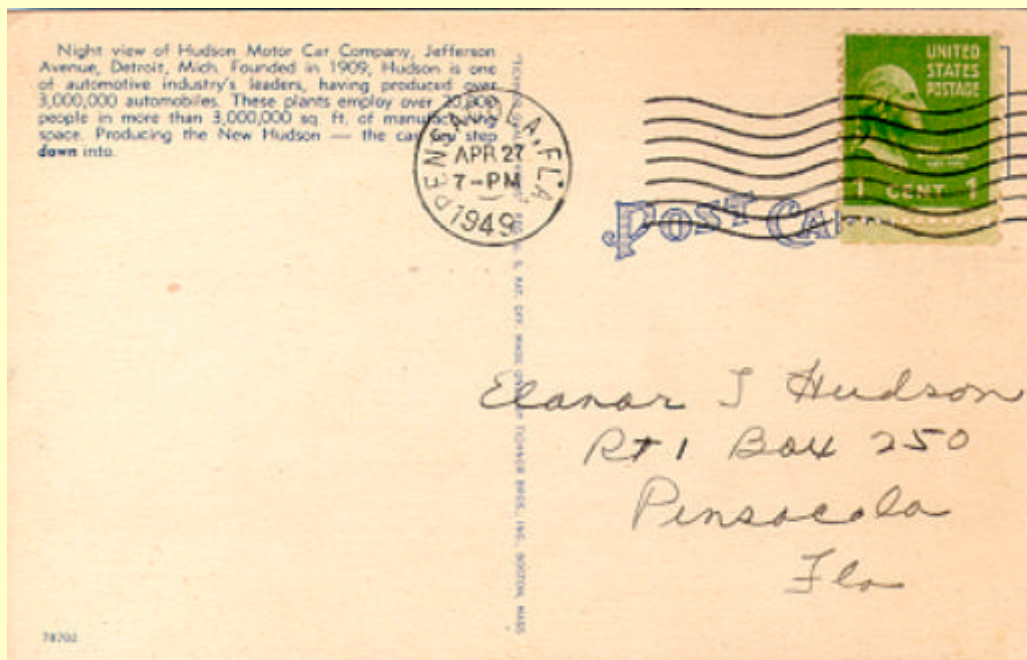 Night view of Hudson Motor Car Company, Jefferson
Avenue, Detroit, Mich. Founded in 1909, Hudson is one
of automotive industry's leaders, having produced over
3,000,000 automobiles. These plants employ over 20,000
people in more than 3,000,000 sq. ft. of manufacturing
space. Producing the New Hudson — the car you step
down into.
PENSACOLA, FLA.
APR 27
7-PM
1949
UNITED
STATES
POSTAGE
1 CENT 1
POST CA
TICHNOR BROS., INC., BOSTON, MASS
Elanor J Hudson
Rt 1 Box 250
Pensacola
Fla
78702